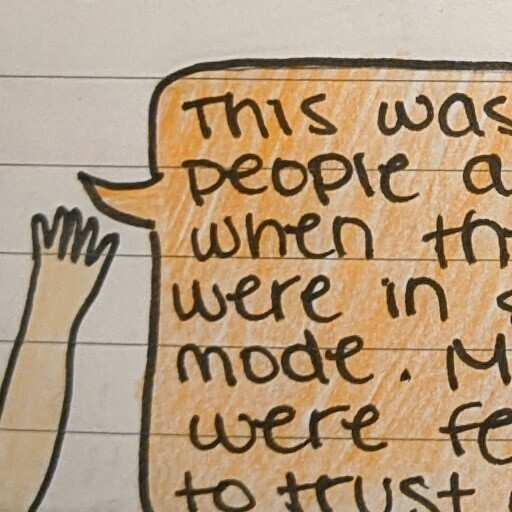 This was
people a
when th
were in
mode. M
were fe
to trust